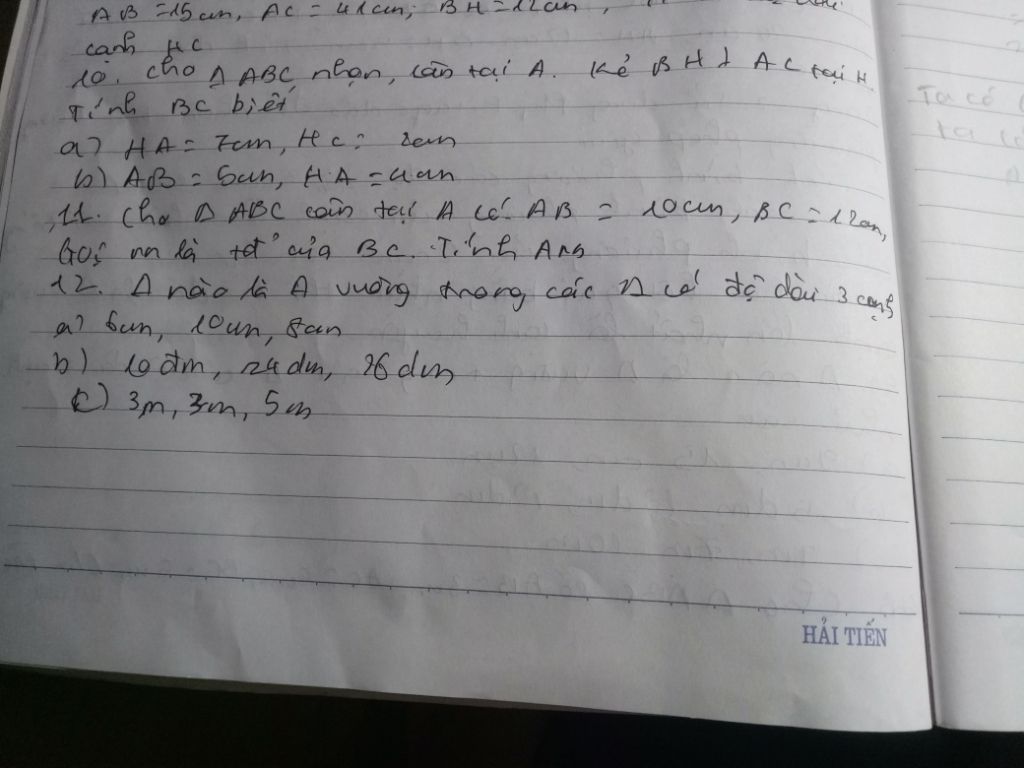 AB = 15cm, AC = 41cm; BH = 12cm,
cạnh HC
10. cho Δ ABC nhọn, cân tại A. Kẻ BH ⊥ AC tại H.
Tính BC biết
a) HA = 7cm, HC = 2cm
b) AB = 5cm, HA = 4cm
11. Cho Δ ABC cân tại A có AB = 10cm, BC = 12cm,
Gọi M là tđ của BC. Tính AM
12. Δ nào là Δ vuông trong các Δ có độ dài 3 cạnh
a) 6cm, 10cm, 8cm
b) 10dm, 24dm, 26dm
c) 3m, 3m, 5m
HẢI TIẾN
Ta có
ta có